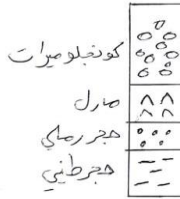 كونغلوميرات
مارل
حجر رملي
حجر طيني